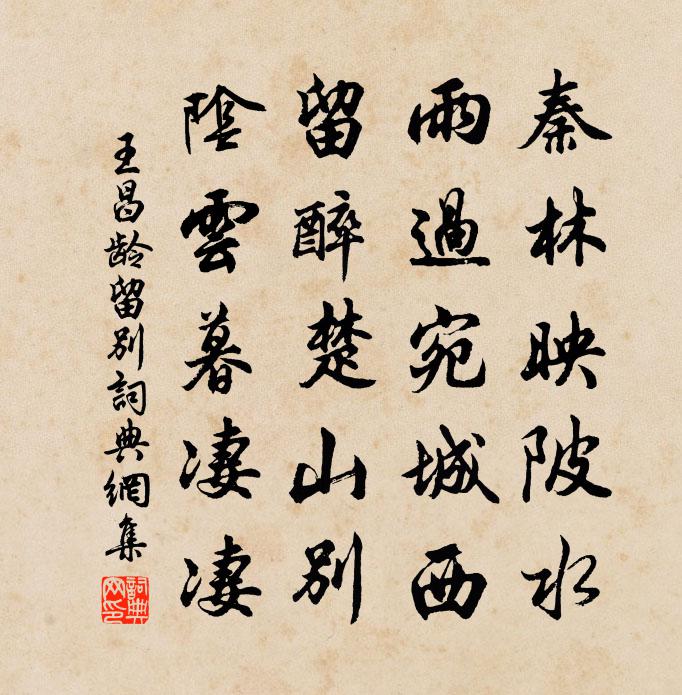 秦林映陂水
雨過宛城西
留醉楚山別
陰雲暮淒淒
王昌龄留别詞典網集
詞典网印